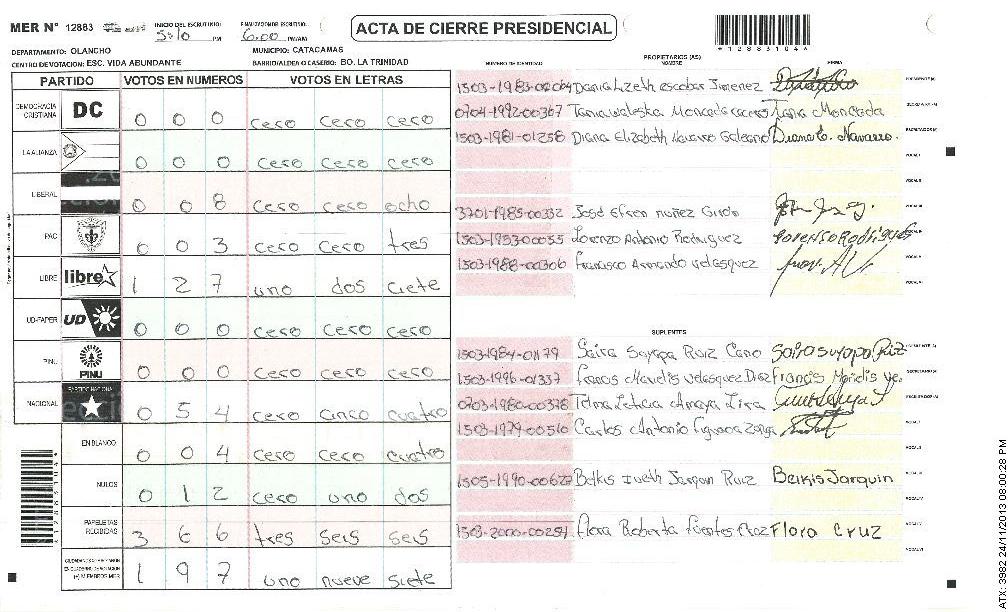 MER N° 12883
INICIO DEL ESCRUTINIO: 5:10 PM
FINALIZACION DEL ESCRUTINIO: 6:00 PM/AM
ACTA DE CIERRE PRESIDENCIAL
*128831044*
DEPARTAMENTO: OLANCHO
MUNICIPIO: CATACAMAS
CENTRO DE VOTACION: ESC. VIDA ABUNDANTE
BARRIO/ALDEA O CASERIO: BO. LA TRINIDAD
PARTIDO VOTOS EN NUMEROS VOTOS EN LETRAS
DEMOCRACIA CRISTIANA DC 0 0 0 cero cero cero
LA ALIANZA 0 0 0 cero cero cero
LIBERAL 0 0 8 cero cero ocho
PAC 0 0 3 cero cero tres
LIBRE libre 1 2 7 uno dos ciete
UD-FAPER UD 0 0 0 cero cero cero
PINU PINU 0 0 0 cero cero cero
NACIONAL PARTIDO NACIONAL 0 5 4 cero cinco cuatro
EN BLANCO 0 0 4 cero cero cuatro
NULOS 0 1 2 cero uno dos
PAPELETAS RECIBIDAS 3 6 6 tres seis seis
(+) MIEMBROS MER 1 9 7 uno nueve siete
PROPIETARIOS (AS)
NUMERO DE IDENTIDAD NOMBRE FIRMA
Dania Lizeth escobar Jimenez PRESIDENTE (A)
0704-1992-00367 Tania waleska Moncada Tania Moncada
1503-1981-01258 Diana Elizabeth Navarro Galeano Diana E. Navarro.
3701-1985-00332 José Efren nuñez
1503-1953-00055 Lorenzo Antonio Rodriguez Lorenso Rodriguez
1503-1988-00306 Francisco Armando velasquez
SUPLENTES
1503-1984-01179 Saira Suyapa Ruiz Cano Saira suyapa Ruiz
1503-1996-01337 Francis Maridis velasquez Diaz Francis Maridis ve.
0703-1980-00378 Telma Leticia Amaya Lira
1503-1979-00516 Carlos Antonio Figueroa
1505-1990-00622 Belkis Iveth Jarquin Ruiz Belkis Jarquin
1503-2000-00251 Flora Roberta Fuentes Flora Cruz
ATX: 3982 24/11/2013 08:00:28 PM